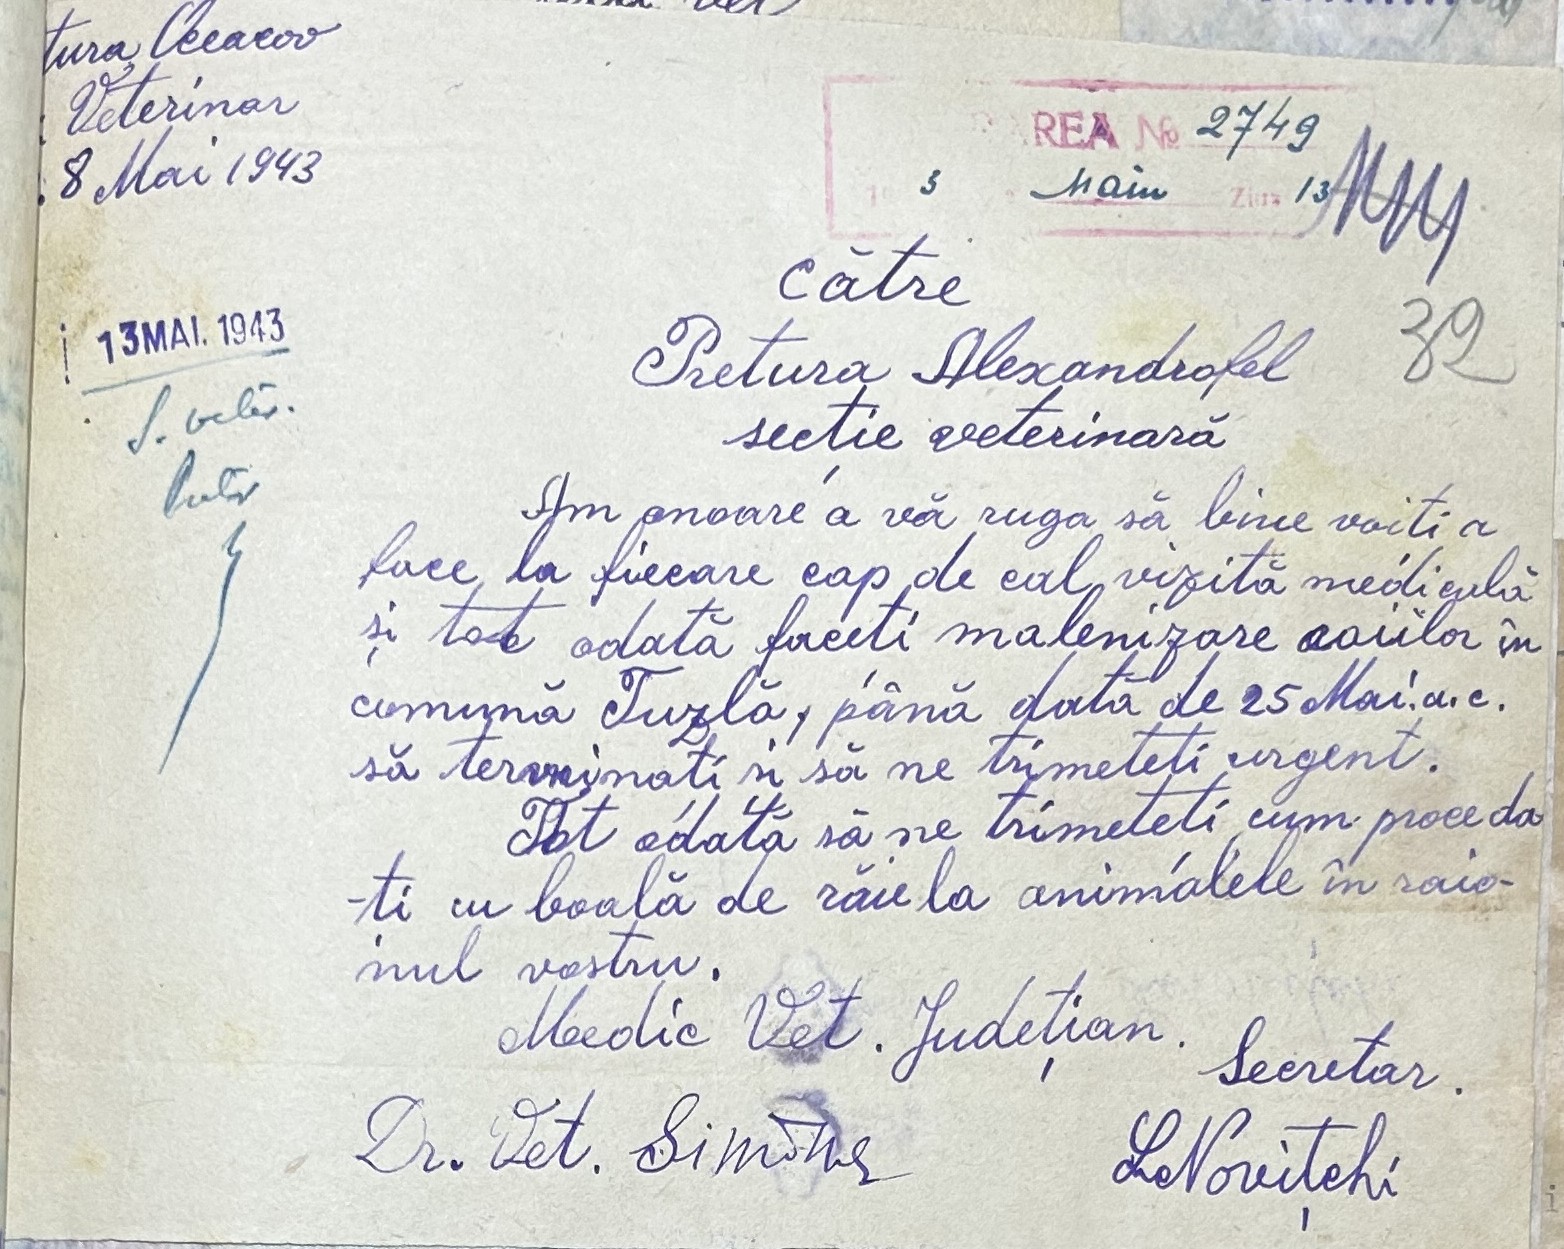 tura Oceacov
Veterinar
8 Mai 1943
REA № 2749
Ziua 13
13 MAI. 1943
S. veter.
32
Către
Pretura Alexandrofel
secție veterinară
Am onoare a vă ruga să bine voiti a
face la fiecare cap de cal vizită mediculă
și tot odată faceti malenizare caiilor în
comună Tuzlă, până dată de 25 Mai. a. c.
să terminati si să ne trimeteti urgent.
Tot odată să ne trimeteti cum proceda
-ti cu boală de răie la animalele în raio-
nul vostru.
Medic Vet. Județian.
Secretar.
Dr. Vet. Simone
LNovițchi